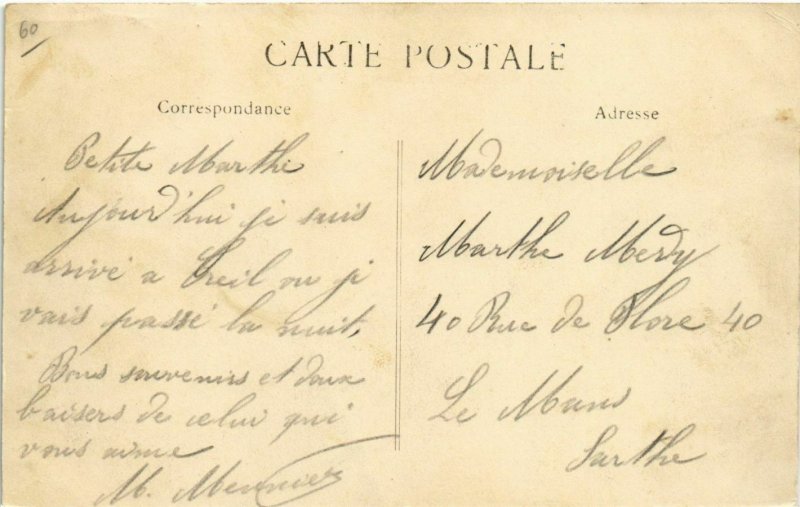 60
CARTE POSTALE
Correspondance
Petite Marthe
Aujourd'hui je suis
arrivé a Creil ou je
vais passé la nuit,
Bons souvenirs et doux
baisers de celui qui
vous aime
M. Meunier
Adresse
Mademoiselle
Marthe
40 Rue de Flore 40
Le Mans
Sarthe